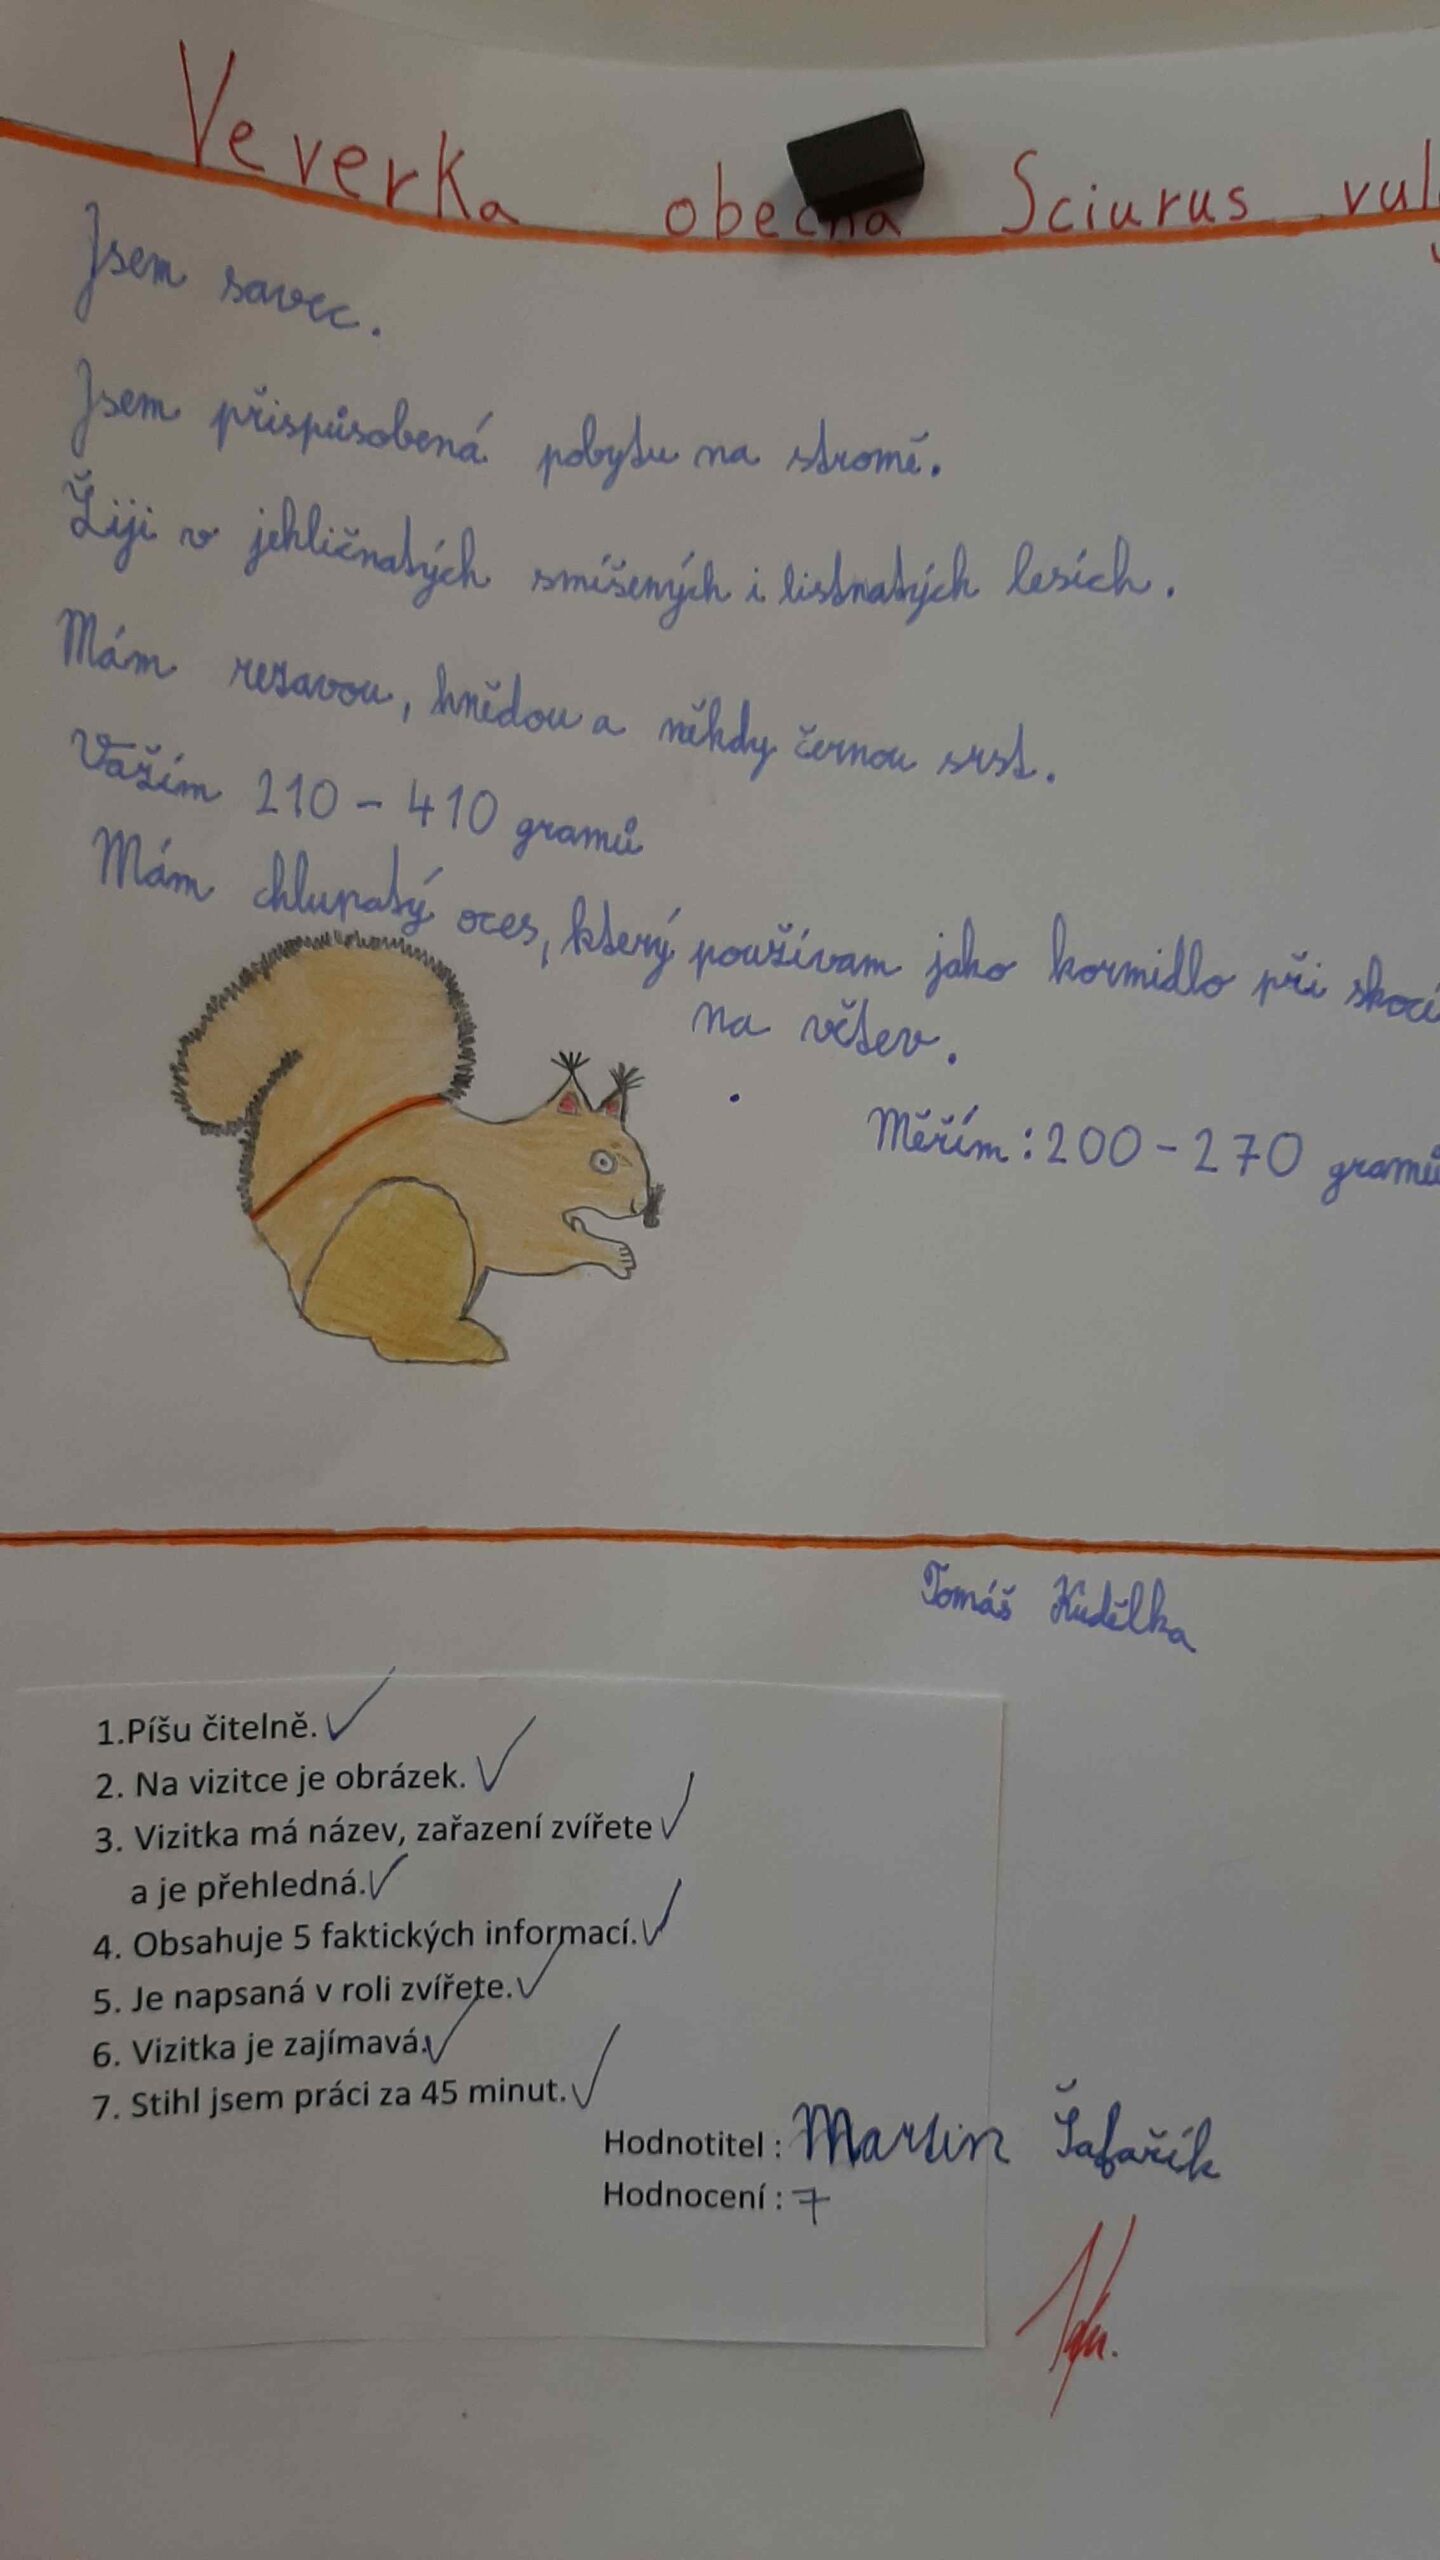 Veverka obecná Sciurus vul
Jsem savec.
Jsem přispůsobená pobytu na stromě.
Žiji v jehličnatých smíšených i listnatých lesích.
Mám rezavou, hnědou a někdy černou srst.
Vážím 210 - 410 gramů
Mám chlupatý oces, který používam jako kormidlo při skoci
na větev.
Měřím : 200 - 270 gramů
Tomáš Kudělka
1.Píšu čitelně. ✓
2. Na vizitce je obrázek. ✓
3. Vizitka má název, zařazení zvířete ✓
a je přehledná. ✓
4. Obsahuje 5 faktických informací. ✓
5. Je napsaná v roli zvířete. ✓
6. Vizitka je zajímavá. ✓
7. Stihl jsem práci za 45 minut. ✓
Hodnotitel : Martin Šafařík
Hodnocení : 7